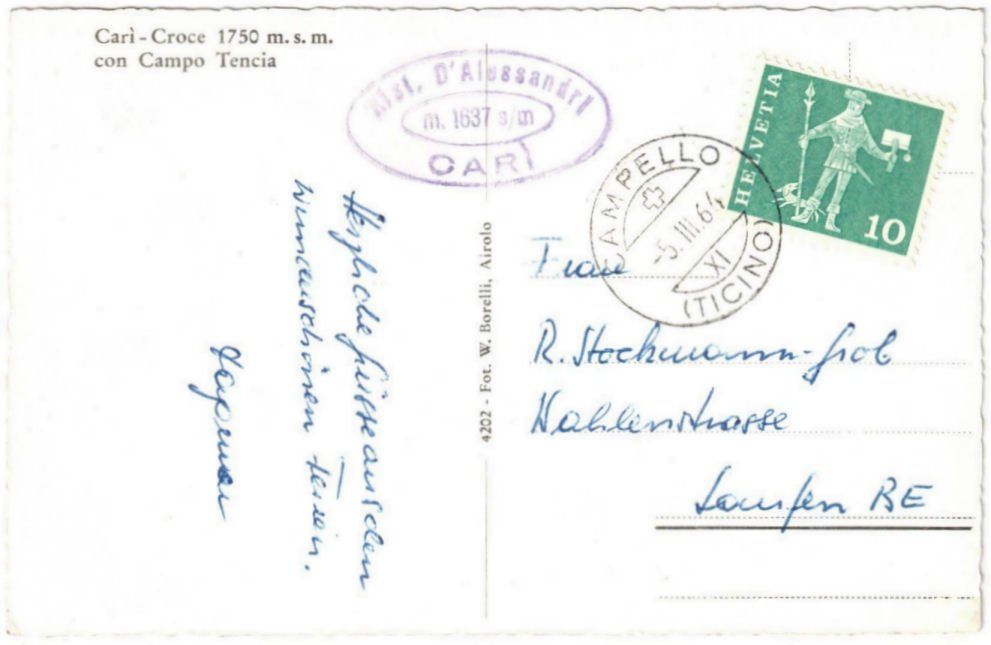 Carì - Croce 1750 m. s. m.
con Campo Tencia
Rist. D'Alessandri
m. 1637 s/m
CARÌ
HELVETIA
10
CAMPELLO
-5.III.64
XI
(TICINO)
Herzliche Grüsse aus dem
wunderschönen Tessin.
4202 - Fot. W. Borelli, Airolo
Frau
R. Stockmann-Grob
Wahlenstrasse
Laufen BE